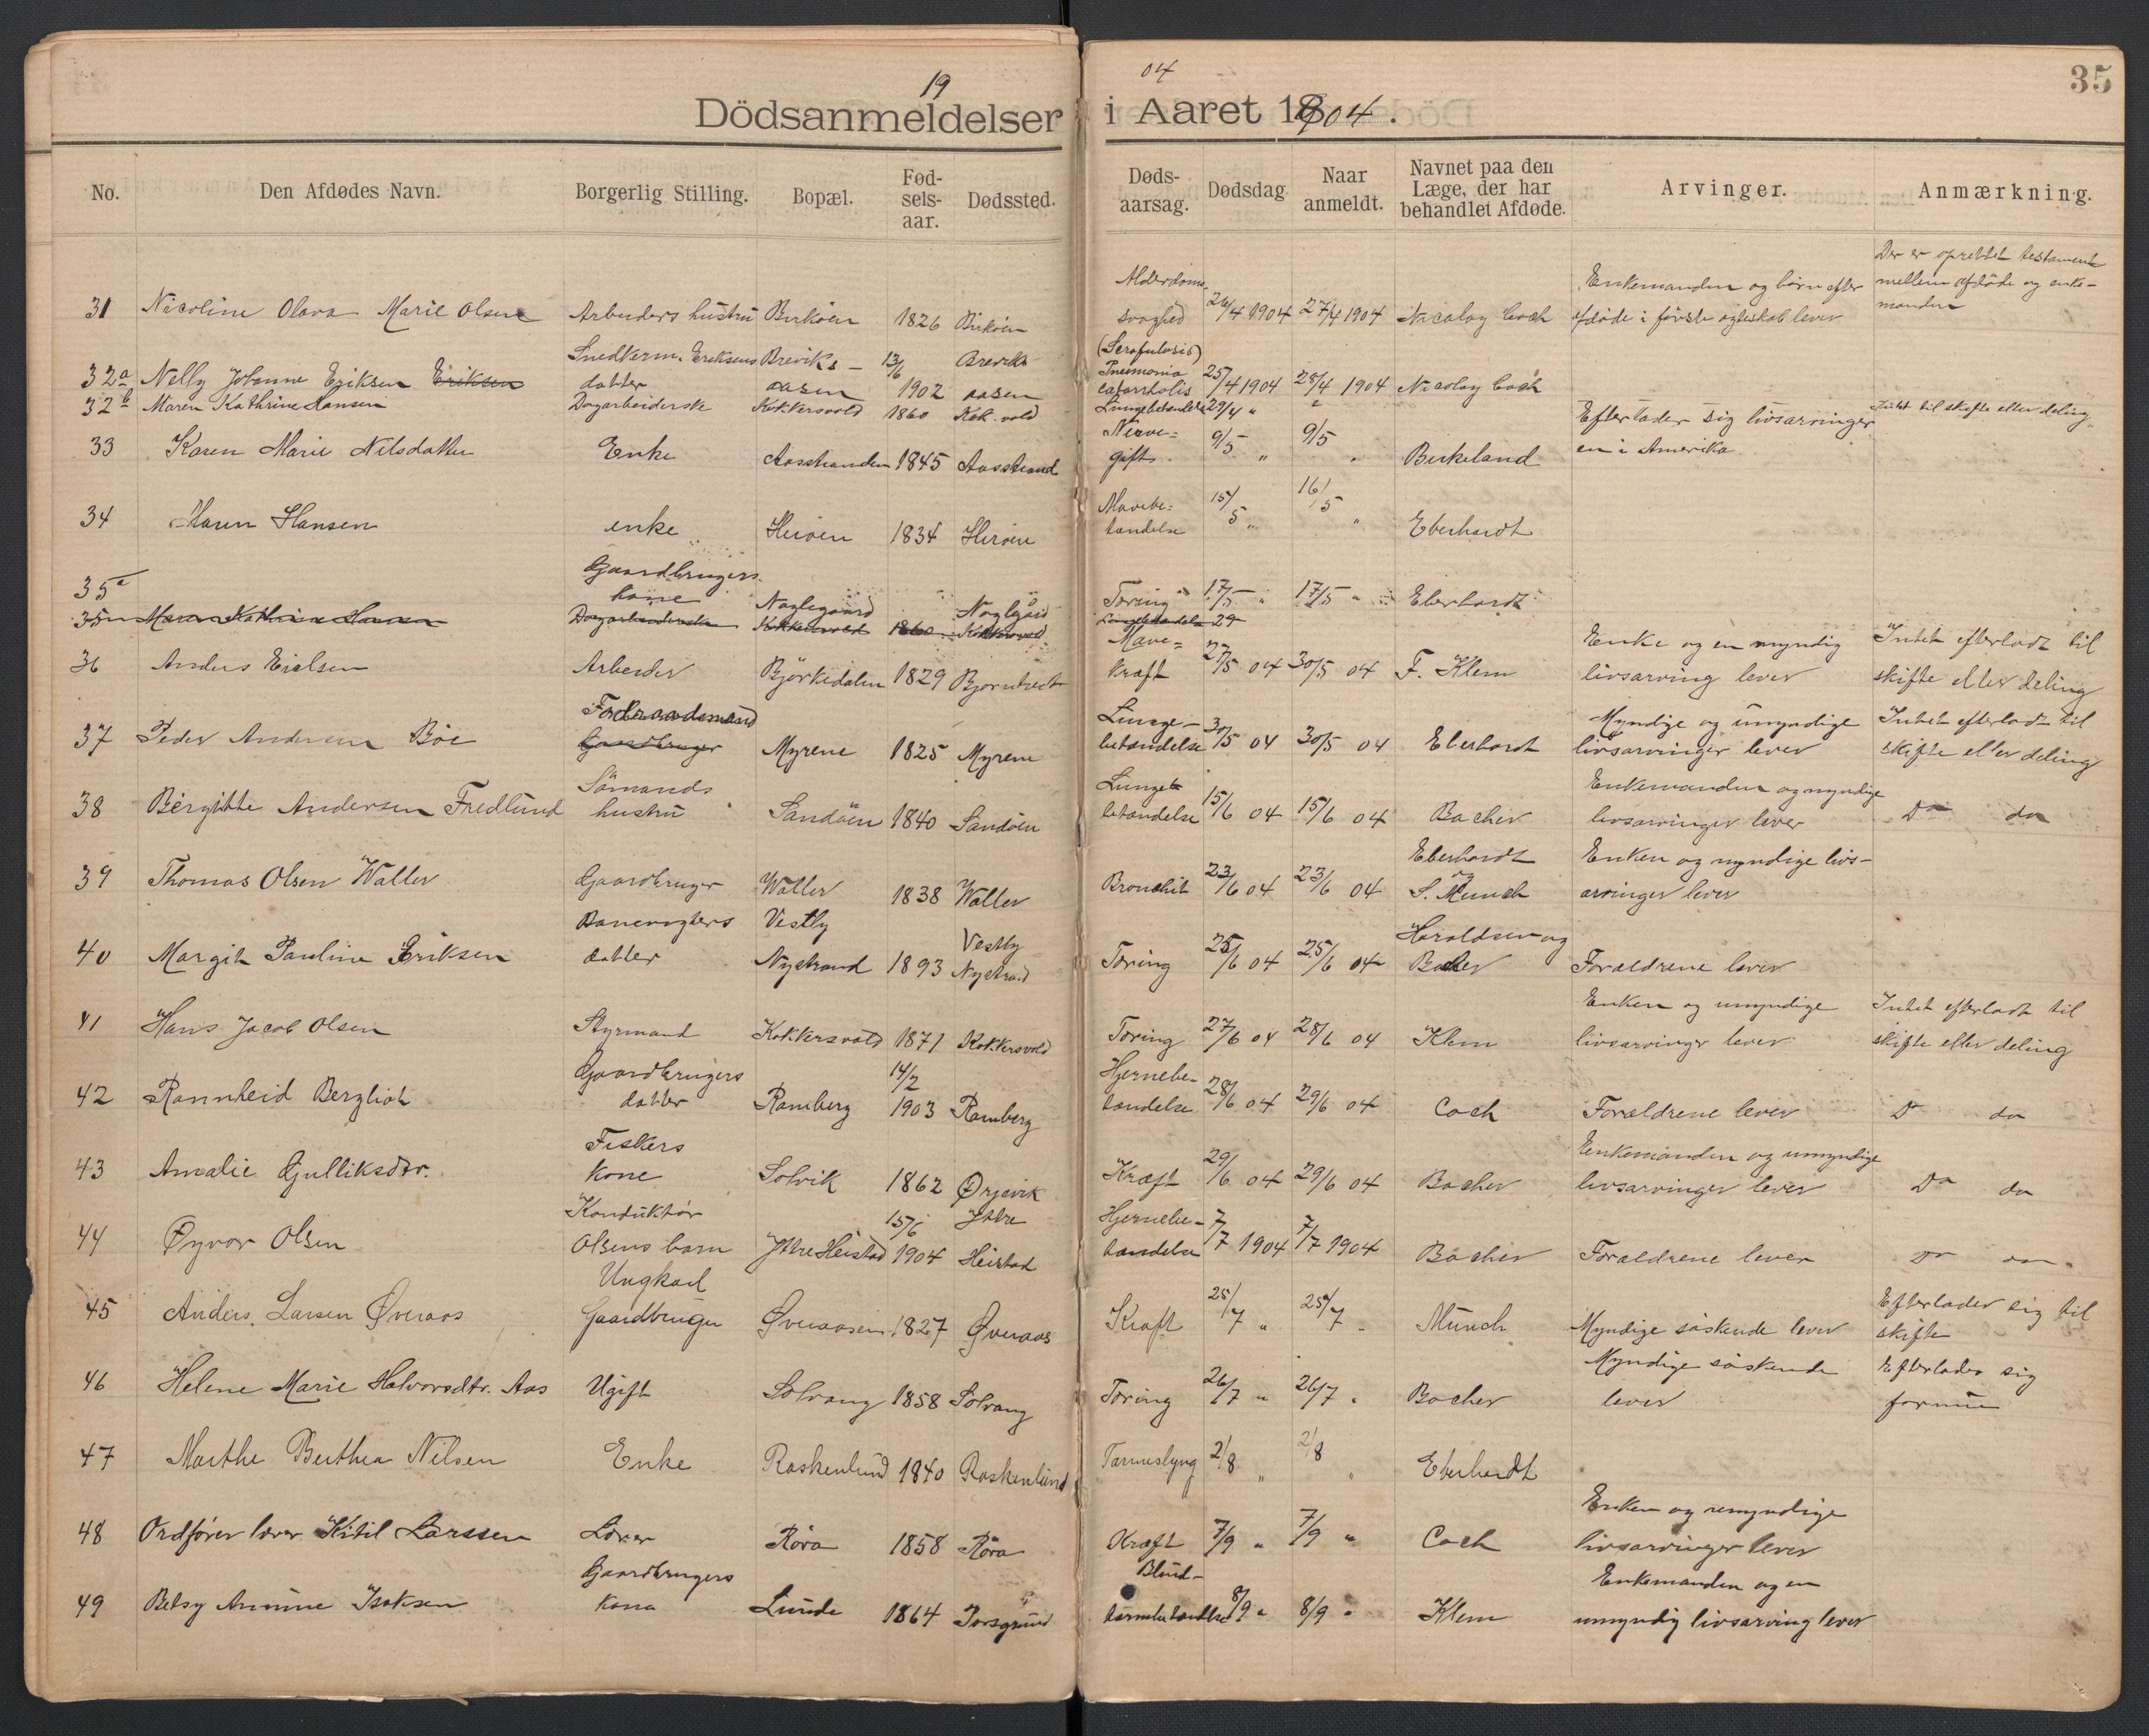 19 04
35
Dödsanmeldelser i Aaret 1904.
No. Den Afdødes Navn. Borgerlig Stilling. Bopæl. Fød-sels-aar. Dødssted. Døds-aarsag. Dødsdag Naar anmeldt. Navnet paa den Læge, der har behandlet Afdøde. Arvinger. Anmærkning.
31 Nicoline Olava Marie Olsen Arbeiders hustru Birköen 1826 Birköen Alderdoms-svaghed 26/4 1904 27/4 1904 Nicolay Coch Enkemanden og börn efter afdøde i første egteskab lever Der er oprettet testament mellem afdøde og enke-manden
32a Nelly Johanne Eriksen Eriksen Snedkerm. Eriksens datter Breviks-aasen 13/6 1902 Breviks aasen (Scrofulosis) Pneimonia catarrhalis 25/4 1904 28/4 1904 Nicolay Coch
32b Maren Kathrine Hansen Dagarbeiderske Kokkersvold 1860 Kok.vold Lungebetændelse 29/4 " " Intet til skifte eller deling
33 Karen Marie Nilsdatter Enke Aasstranden 1845 Aasstrand Nerve=gift. 9/5 " 9/5 " Birkeland Efterlader sig livsarvinger en i Amerika
34 Maren Hansen enke Heröen 1834 Heröen Mavebe=tændelse 15/5 " 16/5 " Eberhardt
35a Gaardbrugers kone Nøglegaard Nøglegård Tæring 17/5 " 17/5 " Eberhardt
35 Maren Kathrine Hansen Dagarbeiderske Kokkersvold 1860 Kokkersvold Lungebetændelse 29
36 Anders Eielsen Arbeider Björkedalen 1829 Mave=kræft 27/5 04 30/5 04 F. Klem Enke og en myndig livsarving lever Intet efterladt til skifte eller deling
37 Peder Andersen Böe Föderaadsmand Gaardbruger Myrene 1825 Myrene Lunge-betændelse 30/5 04 30/5 04 Eberhardt Myndige og umyndige livsarvinger lever Intet efterladt til skifte eller deling
38 Birgitte Andersen Fredlund Sömands hustru Sandöen 1840 Sandöen Lunge-betændelse 15/6 04 15/6 04 Bacher Enkemanden og myndige livsarvinger lever Do do
39 Thomas Olsen Waller Gaardbruger Waller 1838 Waller Bronchit 23/6 04 23/6 04 Eberhardt og S. Munch Enken og myndige livs-arvinger lever
40 Margit Pauline Eriksen Banevogters datter Vestby Nystrand 1893 Vestby Nystrand Tæring 25/6 04 25/6 04 Haraldsen og Bacher Forældrene lever
41 Hans Jacob Olsen Styrmand Kokkersvold 1871 Kokkersvold Tæring 27/6 04 28/6 04 Klem Enken og umyndige livsarvinger lever Intet efterladt til skifte eller deling
42 Rannheid Bergliot Gaardbrugers datter Ramberg 14/2 1903 Ramberg Hjernebe-tændelse 28/6 04 29/6 04 Coch Forældrene lever Do do
43 Amalie Gjulliksdtr. Fiskers kone Solvik 1862 Ørjevik Kræft 29/6 04 29/6 04 Bacher Enkemanden og umyndige livsarvinger lever Do do
44 Øyvor Olsen Konduktör Olsens barn Ytre Heistad 15/6 1904 Ytre Heistad Hjernebe-tændelse 7/7 1904 7/7 1904 Bacher Forældrene lever Do do
45 Anders Larsen Øveraas Ungkarl Gaardbruger Øveraasen 1827 Øveraas Kræft 25/7 " 25/7 " Münch Myndige söskende lever Efterlader sig til skifte
46 Helene Marie Halvorsdtr. Aas Ugift Solvang 1858 Solvang Tæring 26/7 " 26/7 " Bacher Myndige söskende lever Efterlader sig formue
47 Marthe Berthea Nilsen Enke Raskenlund 1840 Raskenlund Tarmeslyng 2/8 " 2/8 " Eberhardt
48 Ordfører lærer Kitil Larssen Lærer Röra 1858 Röra Kræft 7/9 " 7/9 " Coch Enken og umyndige livsarvinger lever
49 Betsy Anmine Isaksen Gaardbrugers kona Lunde 1864 Porsgrund Blind-tarmbetændelse 8/9 " 8/9 " Klem Enkemanden og en umyndig livsarving lever